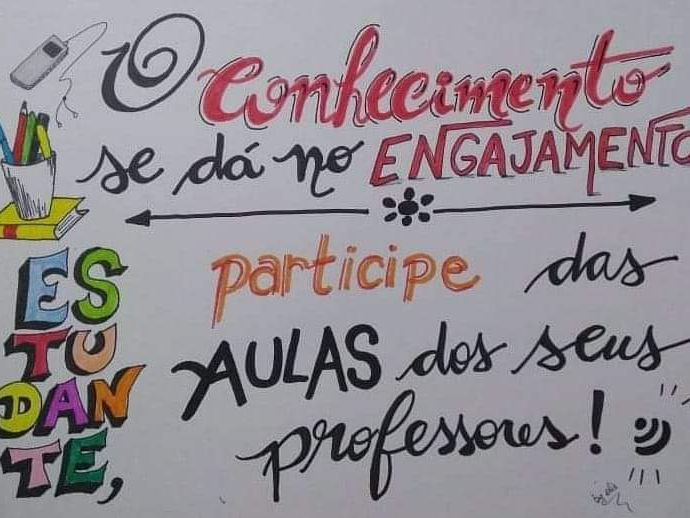 O Conhecimento
se dá no ENGAJAMENTO
ES
TU
DAN
TE,
participe das
AULAS dos seus
professores!